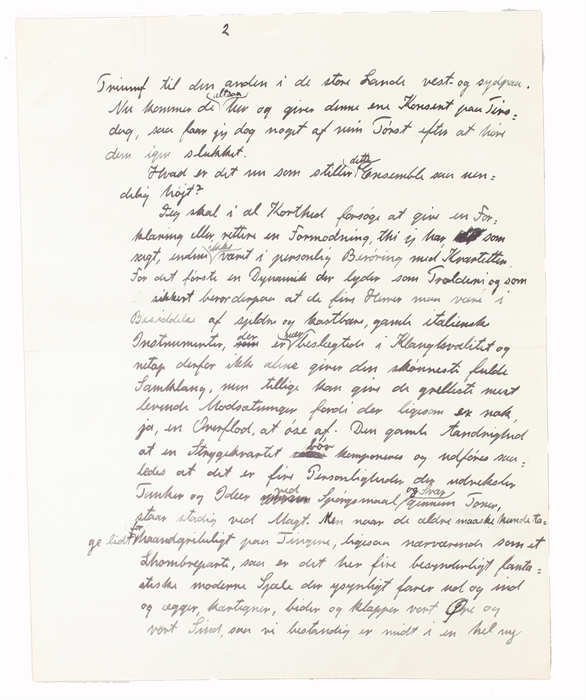 2
Triumf til den anden i de store Lande vest- og sydpaa.
altsaa
Nu kommer de her og giver denne ene Konsert paa Tirs=
dag, saa faar jeg dog noget af min Törst efter at höre
dem igen slukket.
dette
Hvad er det nu som stiller Ensemble saa uen=
delig højt?
Jeg skal i al Korthed forsøge at give en For-
klaring eller, rettere en Formodning, thi jeg har som
ikke
sagt, endnu været i personlig Berøring med Kvartetten.
For det første en Dynamik der lyder som Trolderi og som
sikkert beror derpaa at de fire Herrer maa være i
Besiddelse af sjeldne og kostbare, gamle italienske
der nær
Instrumenter, er beslegtede i Klangkvalitet og
netop derfor ikke alene giver den skønneste fulde
Samklang, men tillige kan give de grelleste mest
levende Modsætninger fordi der ligesom er nok,
ja, en Overflod, at øse af. Den gamle Aandrighed
bör
at en Strygekvartet komponeres og udføres saa-
ledes at det er fire Personligheder der udveksler
ved og Svar
Tanker og Ideer Spörgsmaal gennem Toner,
staar stadig ved Magt. Men naar de ældre maaske kunde ta-
for
ge lidt haandgribeligt paa Tingene, ligesom nærværende som et
Lhombreparti, saa er det her fire besynderligt fanta=
stiske moderne Sjæle der usynligt farer ud og ind
og ægger, kærtegner, bider og klapper vort Øre og
vort Sind, saa vi bestandig er midt i en hel ny